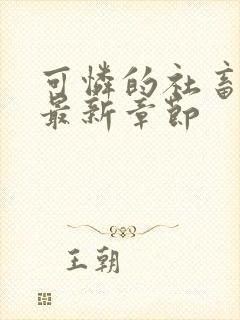 可憐的社畜
最新章節
王朝